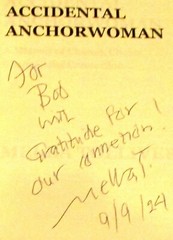 ACCIDENTAL
ANCHORWOMAN
For
Bob
with
Gratitude for
our connection!
9/9/24